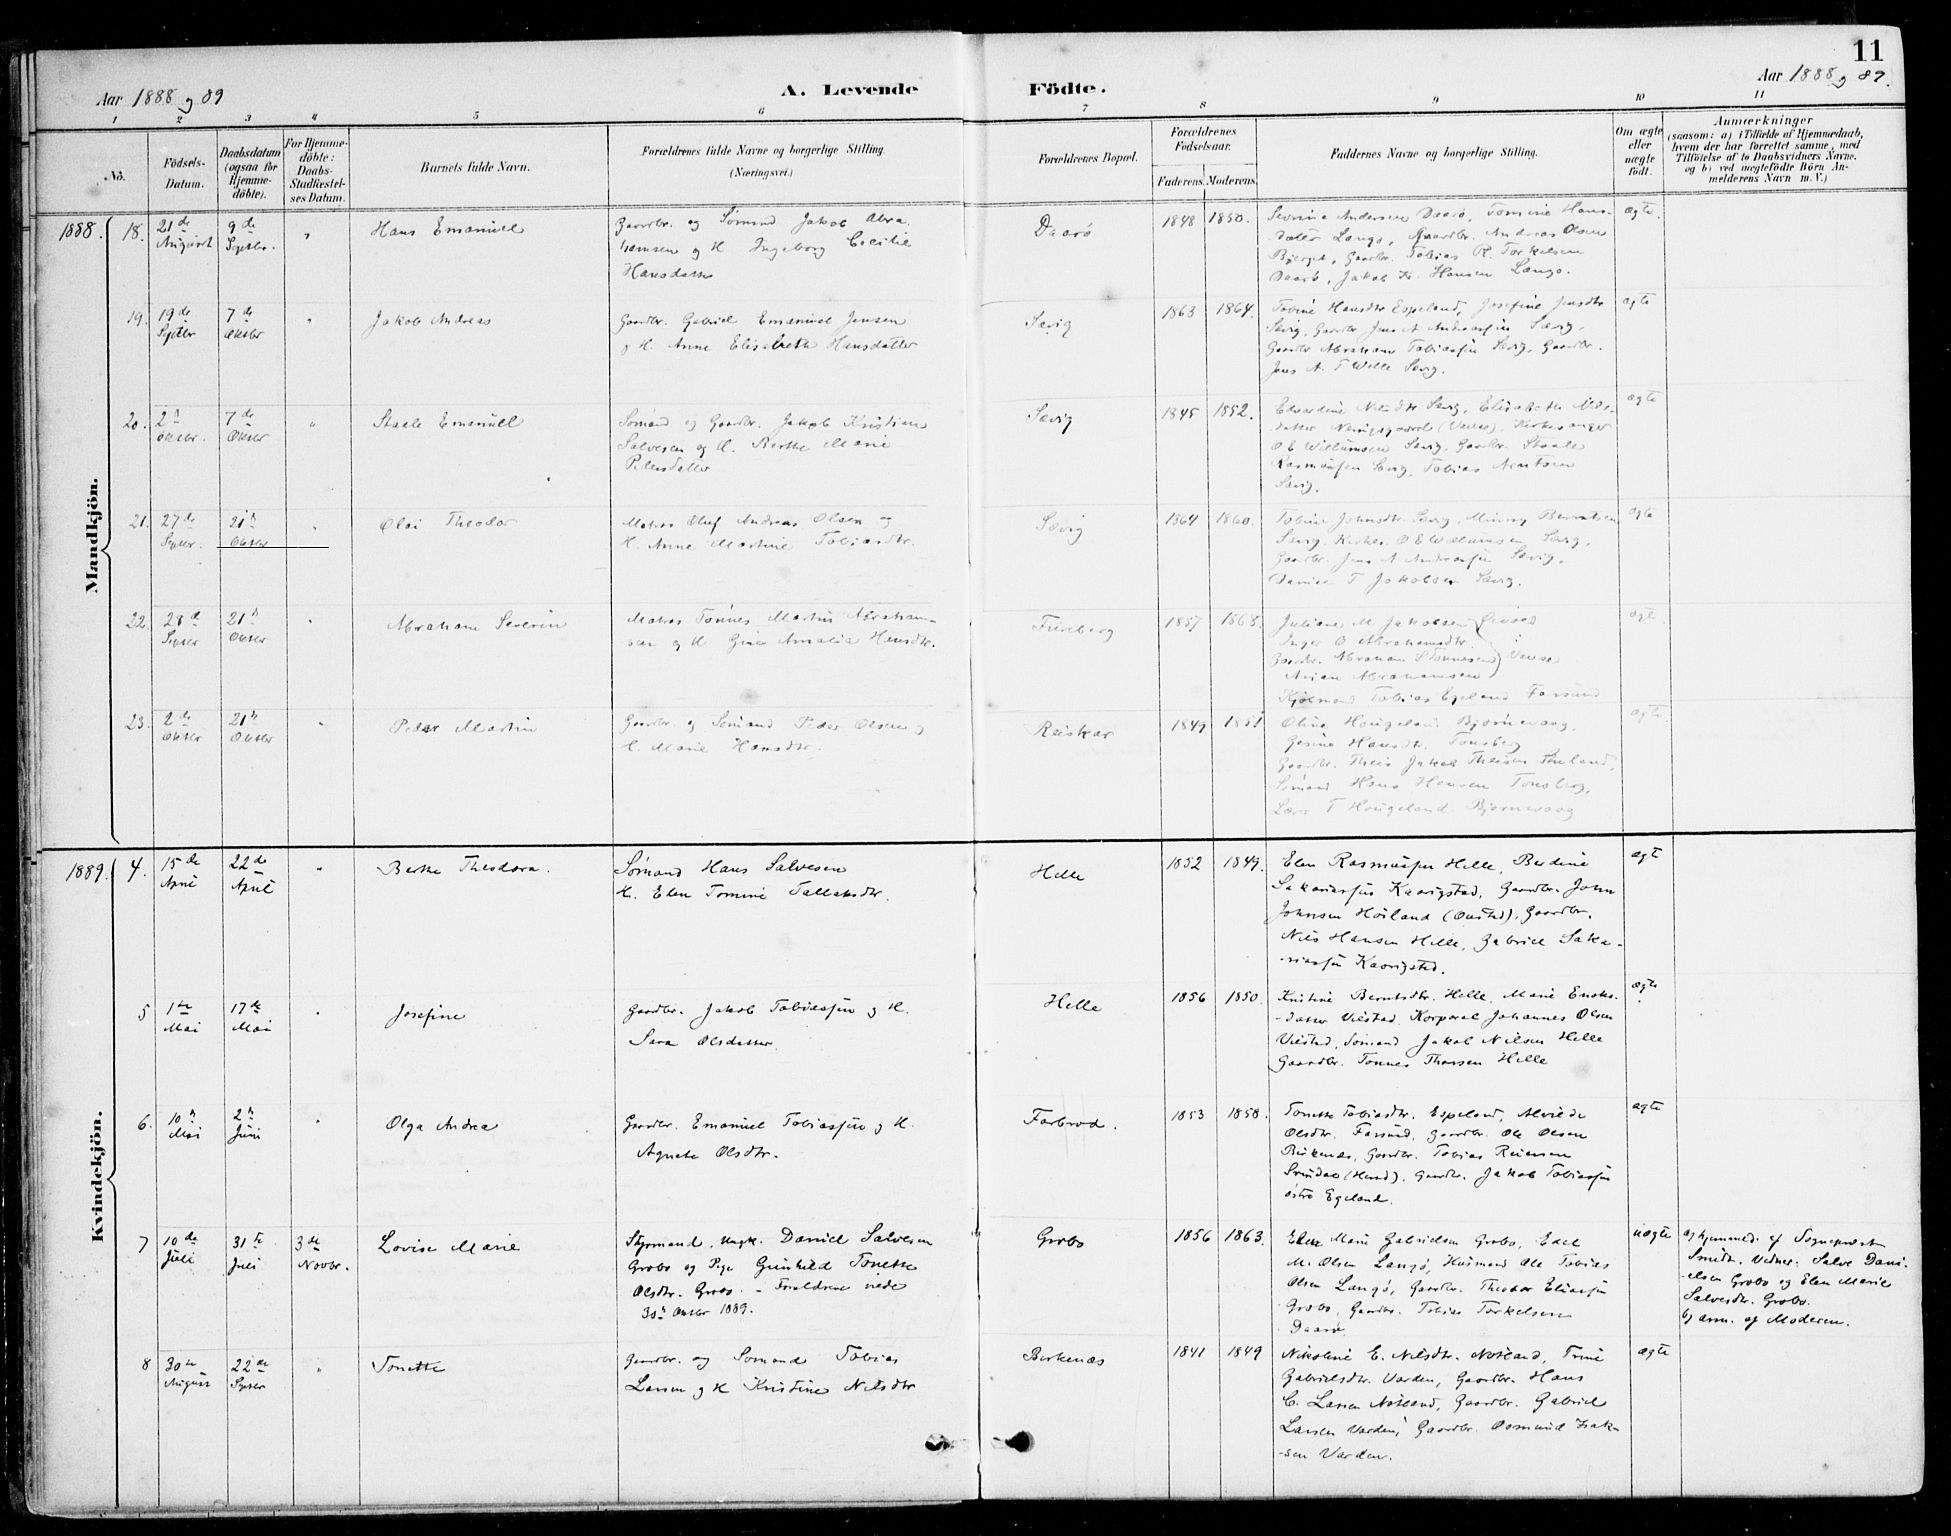 11
Aar 1888 og 89
A. Levende Födte.
Aar 1888 og 89.
1 2 3 4 5 6 7 8 9 10 11
No.
Födsels-Datum.
Daabsdatum (ogsaa for Hjemmedöbte).
For Hjemmedöbte: Daabs-Stadfæstelses Datum.
Barnets fulde Navn.
Forældrenes fulde Navne og borgerlige Stilling. (Næringsvei.)
Forældrenes Bopæl.
Forældrenes Födselsaar.
Faderens. Moderens.
Faddernes Navne og borgerlige Stilling.
Om ægte eller uægte födt.
Anmærkninger
(saasom: a) i Tilfælde af Hjemmedaab, hvem der har forrettet samme, med Tilföielse af to Daabsvidners Navne, og b) ved uægtefödte Börn Anmelderens Navn m. V.)
Mandkjön.
1888. 18. 21de August 9de Septbr. " Hans Emanuel
Gaardbr. og Sømand Jakob Abra-
hamsen og H. Ingeborg Cecilie
Hansdatter
Daarø 1848 1850.
Severine Andersen Daarø, Tomine Hans-
datter Langø, Gaardbr. Andreas Olsen
Bjerget, Gaardbr. Tobias R. Torkelsen
Daarø, Jakob Kr. Hansen Langø.
ægte.
19. 19de Septbr 7de Oktbr " Jakob Andreas
Gaardbr. Gabriel Emanuel Jensen
og H. Anne Elisabeth Hansdatter
Sævig 1863 1864.
Tobine Hansdtr Espeland, Josefine Jensdtr
Sævig, Gaardbr Jens A Andreassen Sævig,
Gaardbr Abraham Tobiassen Sævig, Gaardbr.
Jens A. T Welle Sævig.
ægte
20. 2n Oktbr. 7de Oktbr " Staale Emanuel
Sømand og Gaardbr. Jakob Kristian
Salvesen og H. Berthe Marie
Pedersdatter
Sævig 1845 1852.
Edvardine Nilsdtr Sævig, Elisabeth Nils-
datter (Vanse), Kirkesanger
O E Willumsen Sævig, Gaardbr. Staale
Rasmussen Sævig, Tobias Arntsen
Sævig.
ægte
21. 27de Septbr. 21n Oktbr " Olai Theodor
Matros Oluf Andreas Olsen og
H. Anne Martine Tobiasdtr.
Sævig 1864 1860.
Tobine Johnsdtr Sævig, Minny Berntsen
Sævig, Kirkes. O E Willumsen Sævig,
Gaardbr. Jens A Andreassen Sævig,
Daniel T Jakobsen Sævig.
ægte
22. 28de Septbr 21n Oktbr " Abraham Severin
Matros Tönnes Martin Abraham-
sen og H Gine Amalia Hansdtr.
Fureberg 1857 1868.
Juliane M Jakobsen
Inger O Abrahamsdtr.
Gaardbr. Abraham S Tönnesen Vanse
Arian Abrahamsen
Kjøbmand Tobias Egeland Farsund
ægte
23. 2den Oktbr 21n Oktbr " Peder Martin
Gaardbr. og Sømand Peder Olsen og
H. Marie Hansdtr.
Reiskar 1849 1851
Oline Hougeland Bjørnevaag,
Gesine Hansdtr. Tonsberg
Gaardbr. Theis Jakob Theisen
Sømand Hans Hansen Tonsberg,
Lærer T Hougeland Bjørnevaag
ægte
Kvindekjön.
1889. 4. 15de April 22de April " Berthe Theodora.
Sømand Hans Salvesen
H. Elen Tomine Tallaksdtr.
Helle 1852 1849.
Elen Rasmussen Helle, Berdine
Sakariassen Kaarigstad, Gaardbr. John
Johnsen Høiland (Øusted), Gaardbr.
Nils Hansen Helle, Gabriel Saka-
-riassen Kaarigstad.
ægte
5 1ste Mai 17de Mai " Josefine
Gaardbr. Jakob Tobiassen og H.
Sara Olsdatter
Helle 1856 1850.
Kristine Berntsdtr. Helle, Marie Enoks-
-datter Ulestad, Korporal Johannes Olsen
Ulestad, Sømand Jakob Nilsen Helle
Gaardbr. Tønnes Thorsen Helle
ægte
6. 10n Mai 2n Juni " Olga Andrea
Gaardbr. Emanuel Tobiassen og H.
Agnete Olsdtr.
Farbrod. 1853 1858.
Tonette Tobiasdtr. Espeland, Alvilde
Olsdtr. Farsund, Gaardbr. Ole Olsen
Birkenæs, Gaardbr. Tobias Reiersen
Srindal (Herad), Gaardbr. Jakob Tobiassen
østre Egeland.
ægte
7 10de Juli 31te Juli 3de Novbr. Lovise Marie
Styrmand, Ungk. Daniel Salvesen
Grobo og Pige Gunhild Tonette
Olsdtr. Grobo. – Forældrene viede
30n Oktbr 1889.
Grobo 1856 1863.
Elen Marie Gabrielsen Grobo, Edel
M. Olsen Langø, Husmand Ole Tobias
Olsen Langø, Gaardbr. Theodor Eliassen
Grobo, Gaardbr. Tobias Torkelsen
Daarø
uægte
a) hjemmed. af Sognepræst
Smidt. Vidner: Salve Dani-
-elsen Grobo og Elen Marie
Salvesdtr. Grobo.
b) anm. af Moderen.
8 30te August 22de Septbr " Tonette
Gaardbr. og Sømand Tobias
Larsen og H Kristine Nilsdtr
Birkenæs 1841 1849
Nikoline E. Nilsdtr. Nøtland, Trine
Gabrielsdtr. Varden, Gaardbr. Hans
C. Larsen Nøtland, Gaardbr. Gabriel
Larsen Varden, Gaardbr. Osmund Isak-
-sen Varden.
ægte